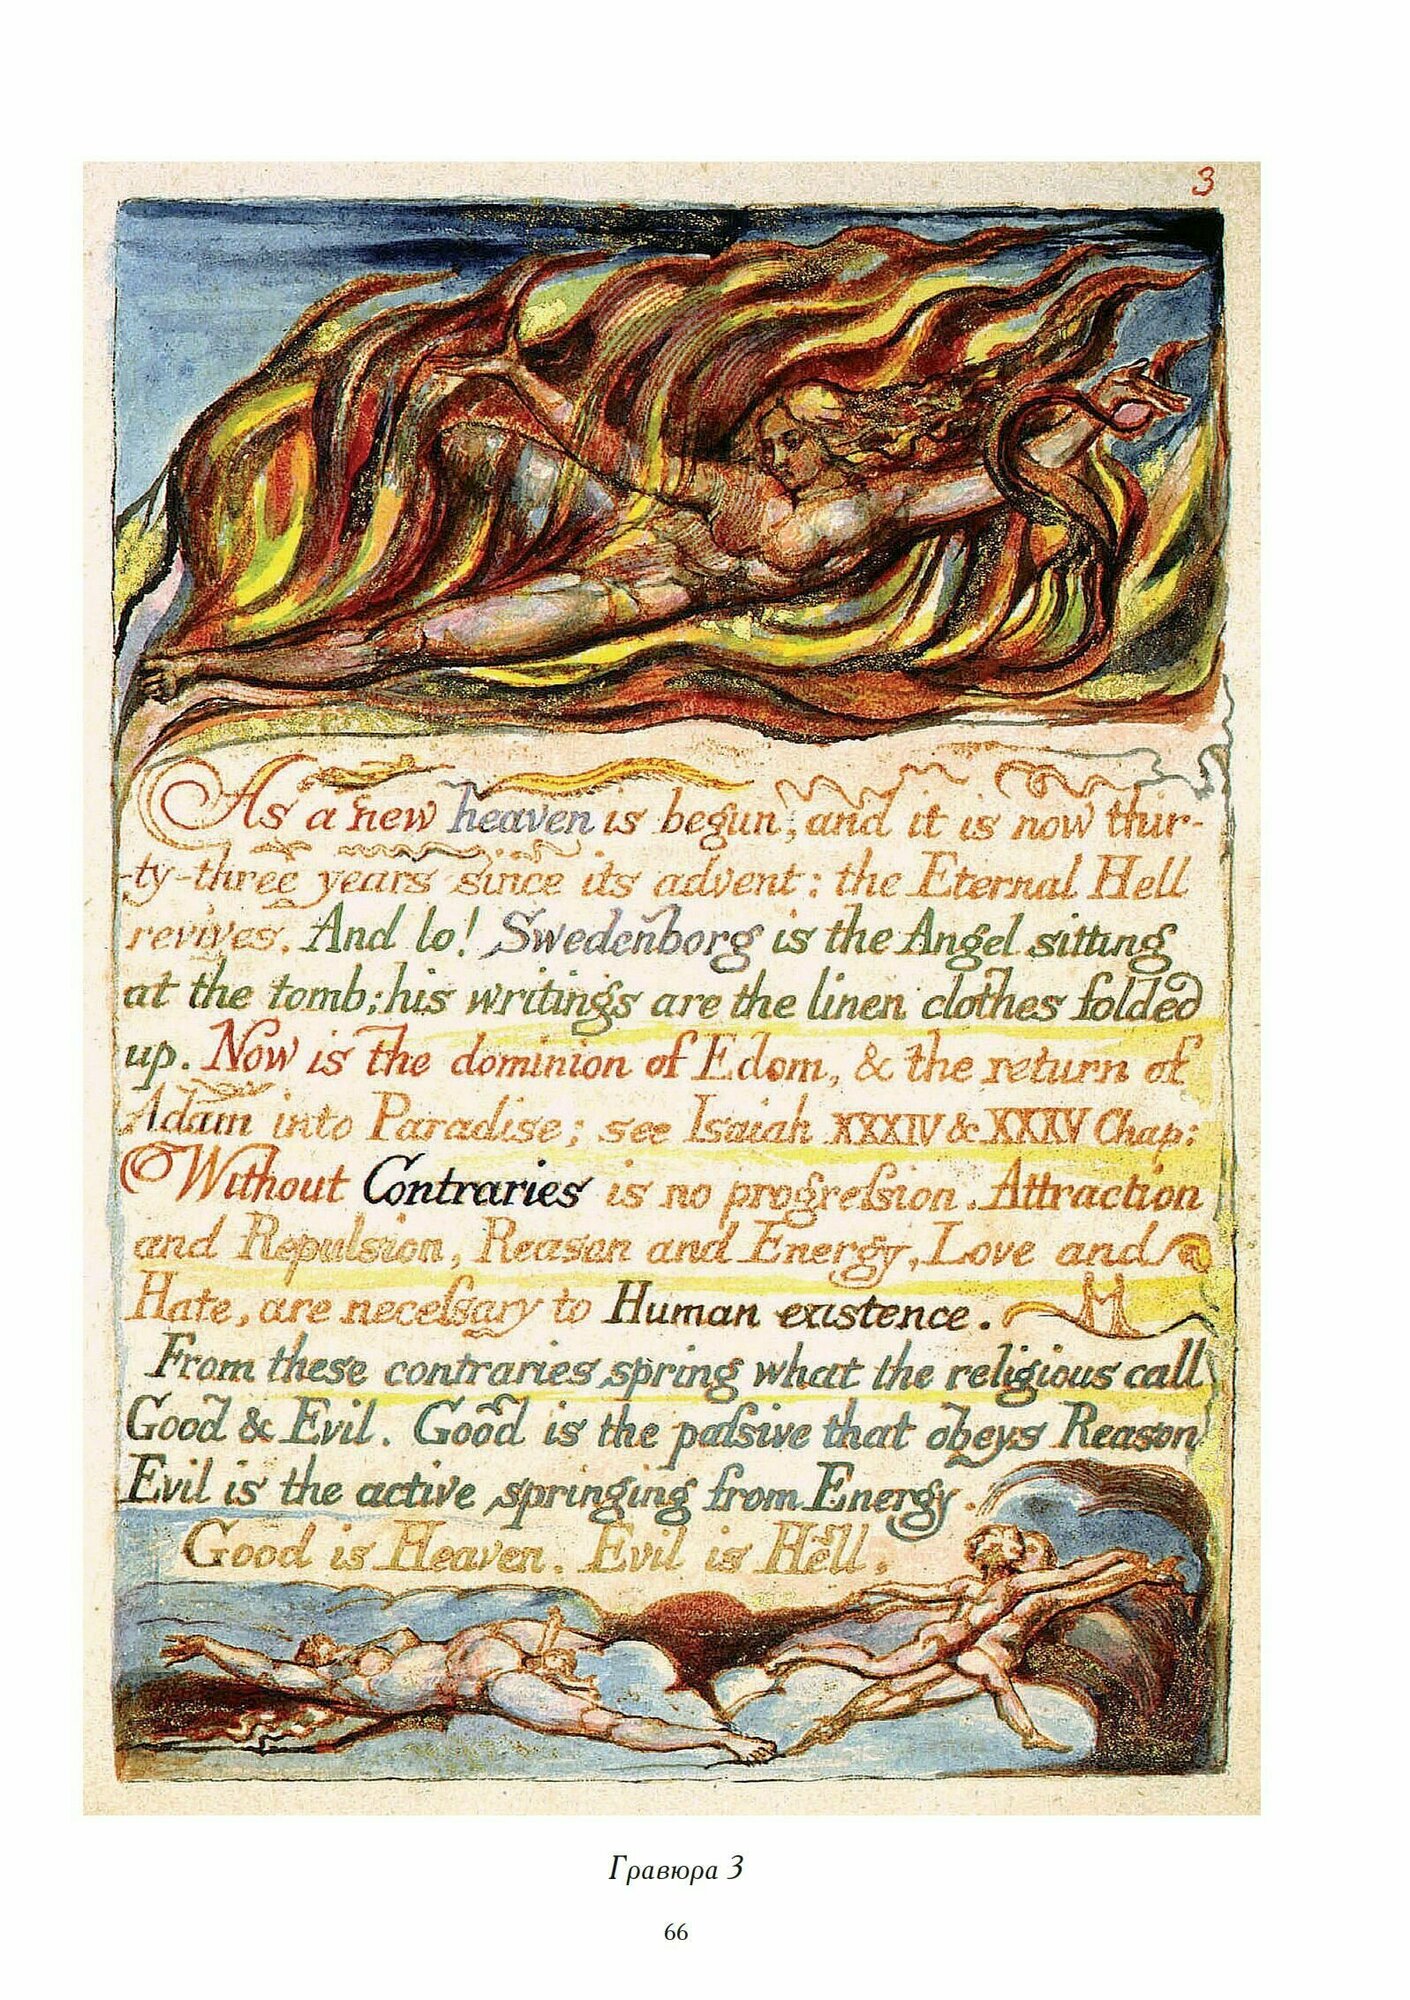 3
As a new heaven is begun, and it is now thir-
-ty-three years since its advent: the Eternal Hell
revives. And lo! Swedenborg is the Angel sitting
at the tomb; his writings are the linen clothes folded
up. Now is the dominion of Edom, & the return of
Adam into Paradise; see Isaiah XXXIV & XXXV Chap:
Without Contraries is no progreſsion. Attraction
and Repulsion, Reason and Energy, Love and
Hate, are neceſsary to Human existence.
From these contraries spring what the religious call
Good & Evil. Good is the paſsive that obeys Reason
Evil is the active springing from Energy.
Good is Heaven. Evil is Hell.
Гравюра 3
66